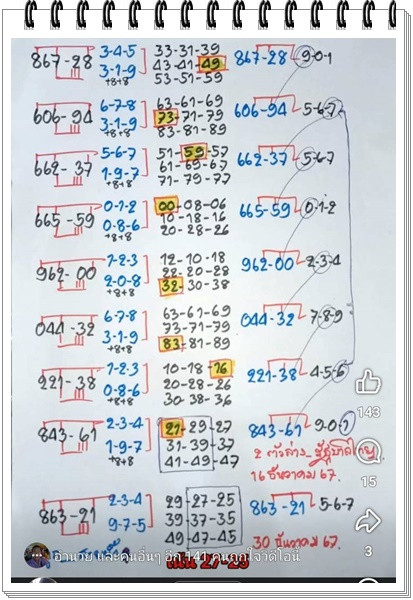 867-28 3-4-5 33-31-39 867-28 9-0-1
3-1-9 43-41-49
+8+8 53-51-59
606-94 6-7-8 63-61-69 606-94 5-6-7
3-1-9 73-71-79
+8+8 83-81-89
662-37 5-6-7 51-59-57 662-37 5-6-7
1-9-7 61-69-67
+8+8 71-79-77
665-59 0-1-2 00-08-06 665-59 0-1-2
0-8-6 10-18-16
+8+8 20-28-26
962-00 1-2-3 12-10-18 962-00 2-3-4
2-0-8 22-20-28
+8+8 32-30-38
044-32 6-7-8 63-61-69 044-32 7-8-9
3-1-9 73-71-79
+8+8 83-81-89
221-38 1-2-3 10-18-16 221-38 4-5-6
0-8-6 20-28-26
+8+8 30-38-36
843-61 2-3-4 21-29-27 843-61 9-0-1
1-9-7 31-39-37
+8+8 41-49-47
2 ตัวล่าง
16 ธันวาคม 67.
863-21 2-3-4 29-27-25 863-21 5-6-7
9-7-5 39-37-35
49-47-45
30 ธันวาคม 67.
143
15
3
อำนวย และคนอื่นๆ อีก 141 คนถูกใจวิดีโอนี้
เน้น 27-29